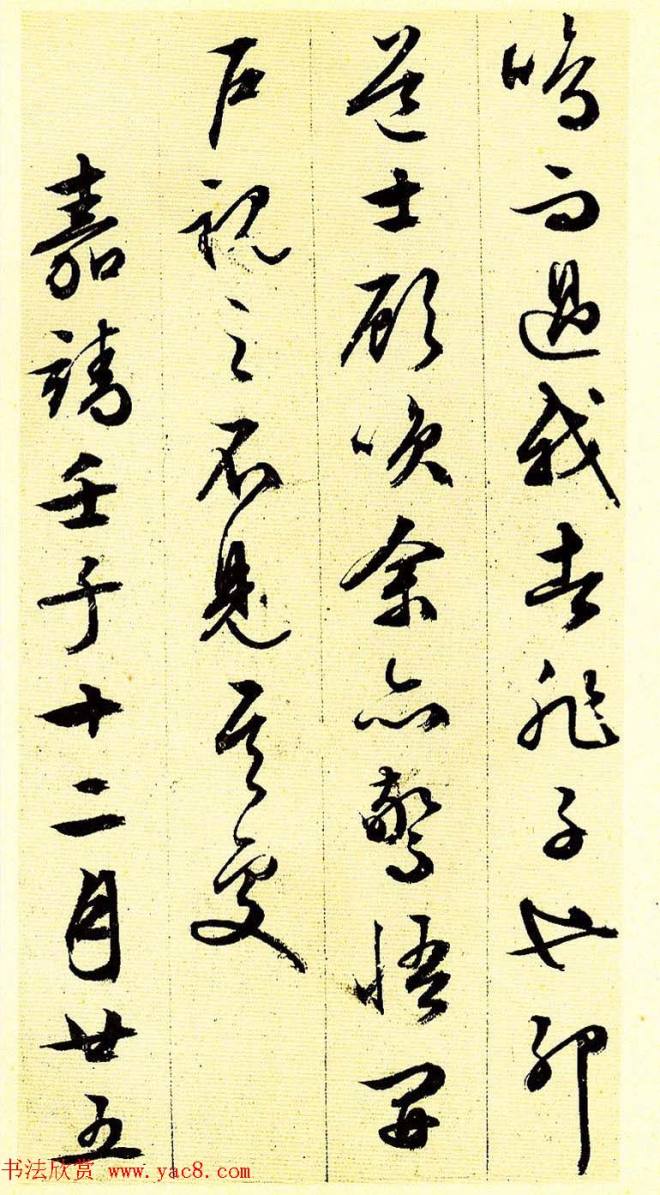 鳴而過我者非子也邪
道士顧笑余亦驚悟開
戶視之不見其處
嘉靖壬子十二月廿五
书法欣赏 www.yac8.com